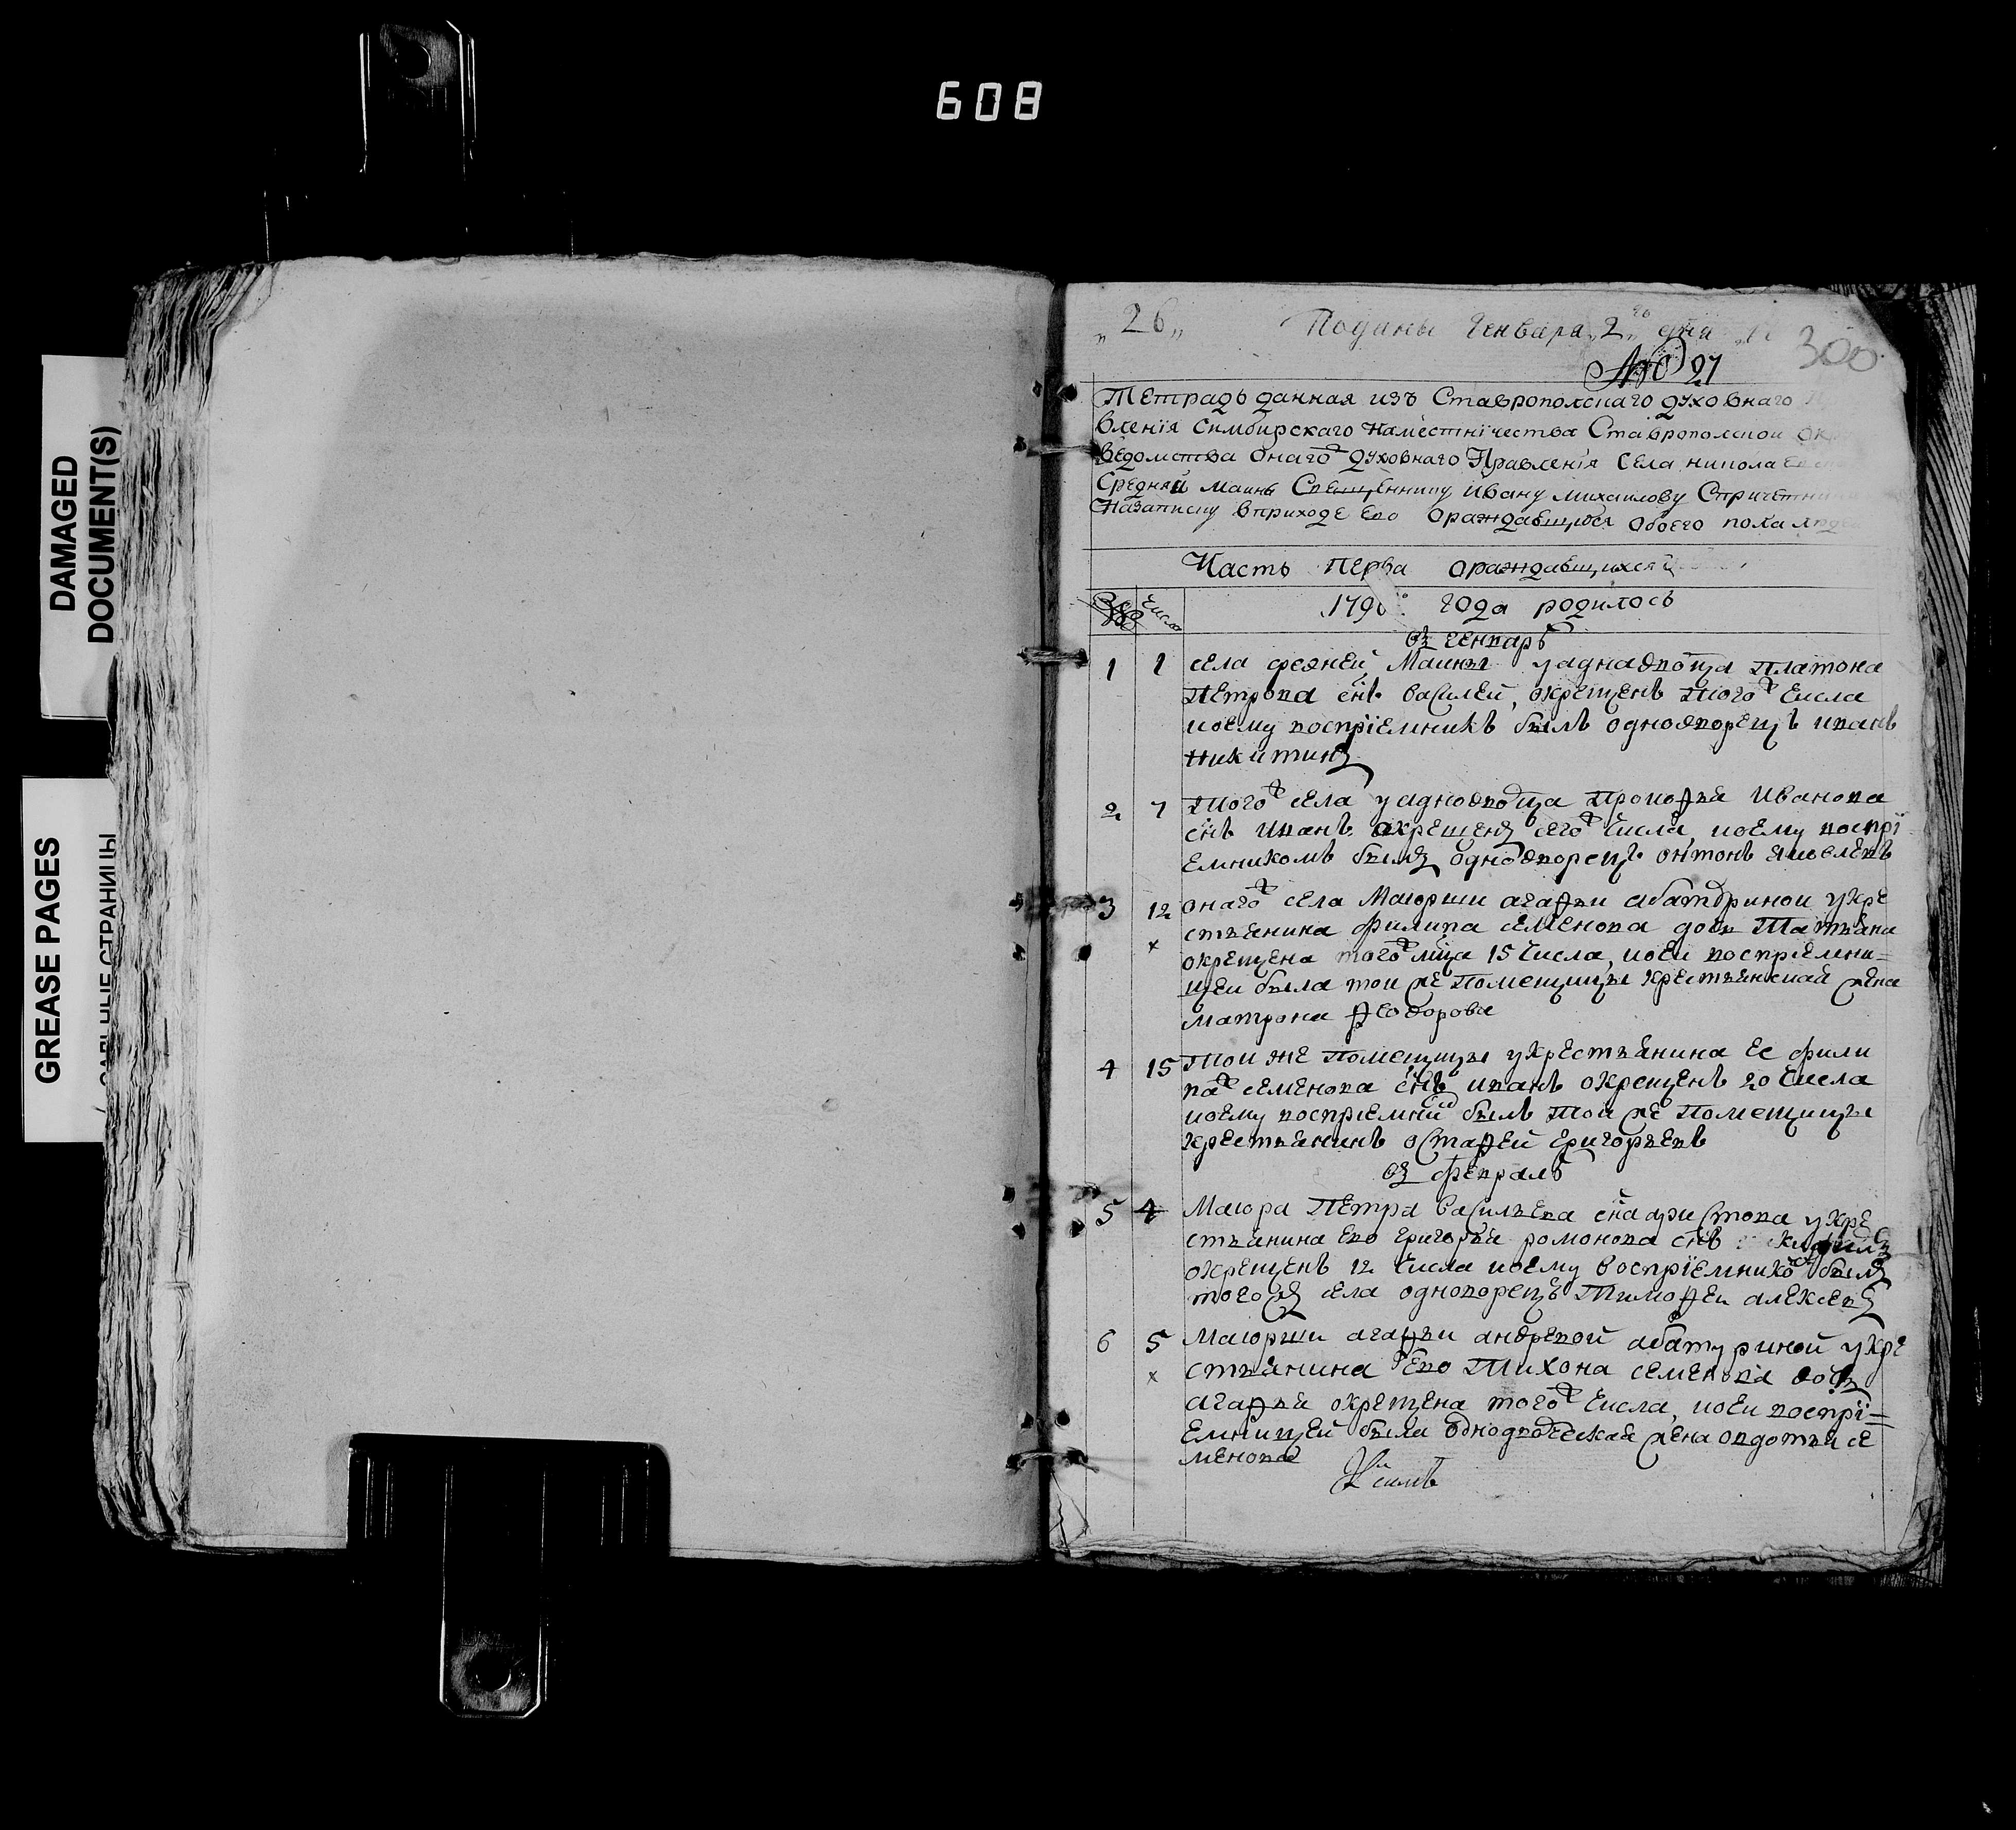 608
DAMAGED
DOCUMENT(S)
GREASE PAGES
САЛЬНЫЕ СТРАНИЦЫ
„26„ Поданы Генваря „2„ го дня
300
№ 27
Тетрадь данная изъ Ставрополскаго духовнаго
вленія Симбирскаго наместничества Ставрополской окр
ведомства онаго ж духовнаго Правленія села николаевск
Средней маины Священнику ивану михаилову Спричетник
Назаписку вприходе ево ораждавшихся обоего пола люде
Часть перва ораждавшихся
Число 1790 года родилось
въ генваръ
1 1 села средней Маины уаднадворца Платона
Петрова снъ василей, окрещенъ того ж числа
иоему восприемникъ былъ однодворецъ иванъ
никитинъ
2 7 того ж села уаднодворца Прокофья Иванова
снъ Иванъ окрещенъ сего ж числа, иоему воспрі
емникомъ былъ однодворецъ онтонъ яковлевъ
3 12 онаго ж села Маиорши агафьи абатуриной укре
х стьянина филипа семенова дочь Татьяна
окрещена того ж мца 15 числа, иоеи восприемни=
цеи была тои же Помещицы крестьянская жена
матрона Феодорова
4 15 тои же помещицы укрестьянина ее фили
па семенова снъ иванъ окрещенъ 20 числа
иоему восприемник былъ тои же помещицы
крестьянинъ остафей григорьевъ
въ февралъ
5 4 Маиора Петра васильева сна аристова укре
стьянина ево григорья романова снъ
окрещенъ 12 числа иоему восприемнико былъ
того ж села одноворецъ Тимофеи алексеевъ
6 5 Маиорши агафьи андревой абатуриной укре
х стьянина ево Тихона семенова дочь
агафья окрещена того ж числа, иоеи воспрі=
емницей была однодворческая жена овдотья се
менова